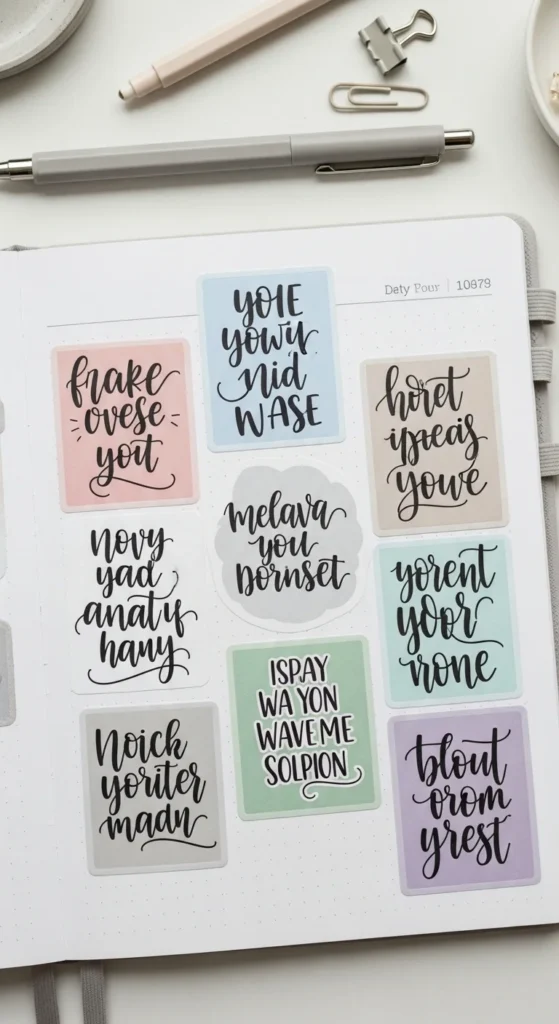 Dety Four | 10879
yoie
yowy
nid
WASE
frake
ovese
yoit
horet
ipreais
yowe
melava
you
bornset
novy
yad
anatif
hany
yorent
yoor
rone
ISPAY
WA YON
WAVE ME
SOLPION
Noich
yoriter
madn
blout
orom
yrest